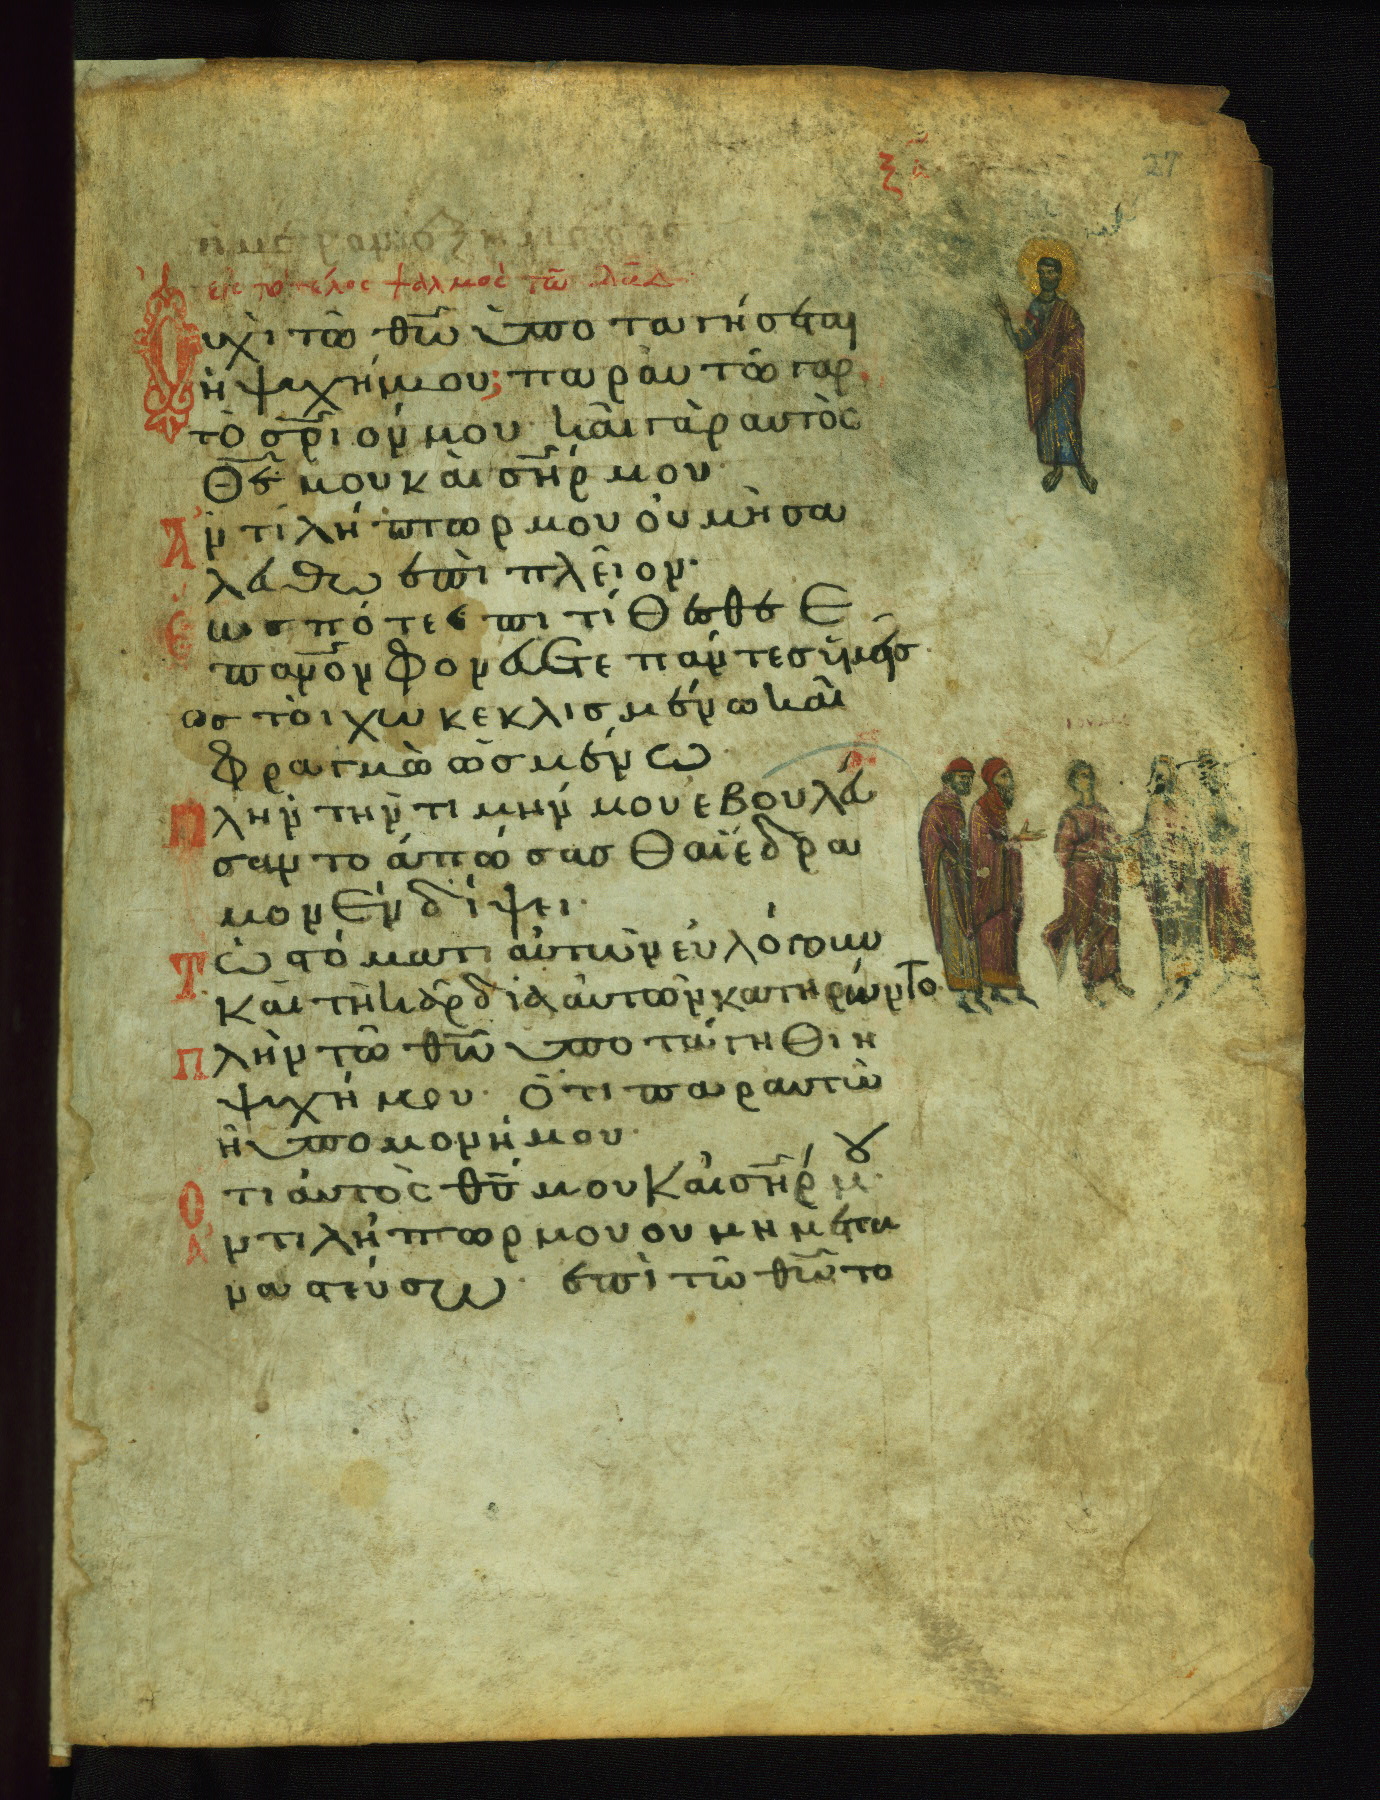 ξα
27
ἡμέρας ἐξ ἡμέρας
εἰς τὸ τέλος ψαλμὸς τῶ δᾱδ
Οὐχὶ τῶ θω ὑποταγήσεται
ἡ ψυχή μου; παρ αυτῶ γαρ
τὸ σριον μου καὶ γὰρ αυτὸς
Θς μου καὶ σηρ μου
Αντιλήπτωρ μου ου μὴ σα
λευθω επι πλεῖον·
Εως πότε επιτίθεσθε ε
π ανον φονεύετε πάντες ὑμεῖς
ως τοίχω κεκλισμένω καὶ
φραγμῶ ὠσμένω
Πλην την τιμήν μου εβουλεύ
σαντο ἀπώσασθαι ἔδρα
μον Εν δίψει·
Τῶ στόματι αὐτῶν εὐλόγουν
καὶ τῆ καρδία αὐτῶν κατηρῶντο
Πλὴν τῶ θω ὑποτάγηθι ἡ
ψυχή μου· Ὅτι παρ αυτῶ
ἡ υπομονή μου·
Οτι αὐτὸς θς μου Και σηρ μου
Αντιλήπτωρ μου ου μη μετα
ναστεύσω· επὶ τῶ θω το